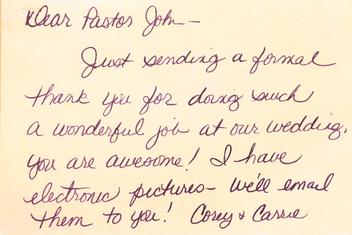 Dear Pastor John –
Just sending a formal
thank you for doing such
a wonderful job at our wedding.
you are awesome! I have
electronic pictures – we'll email
them to you! Corey & Carrie